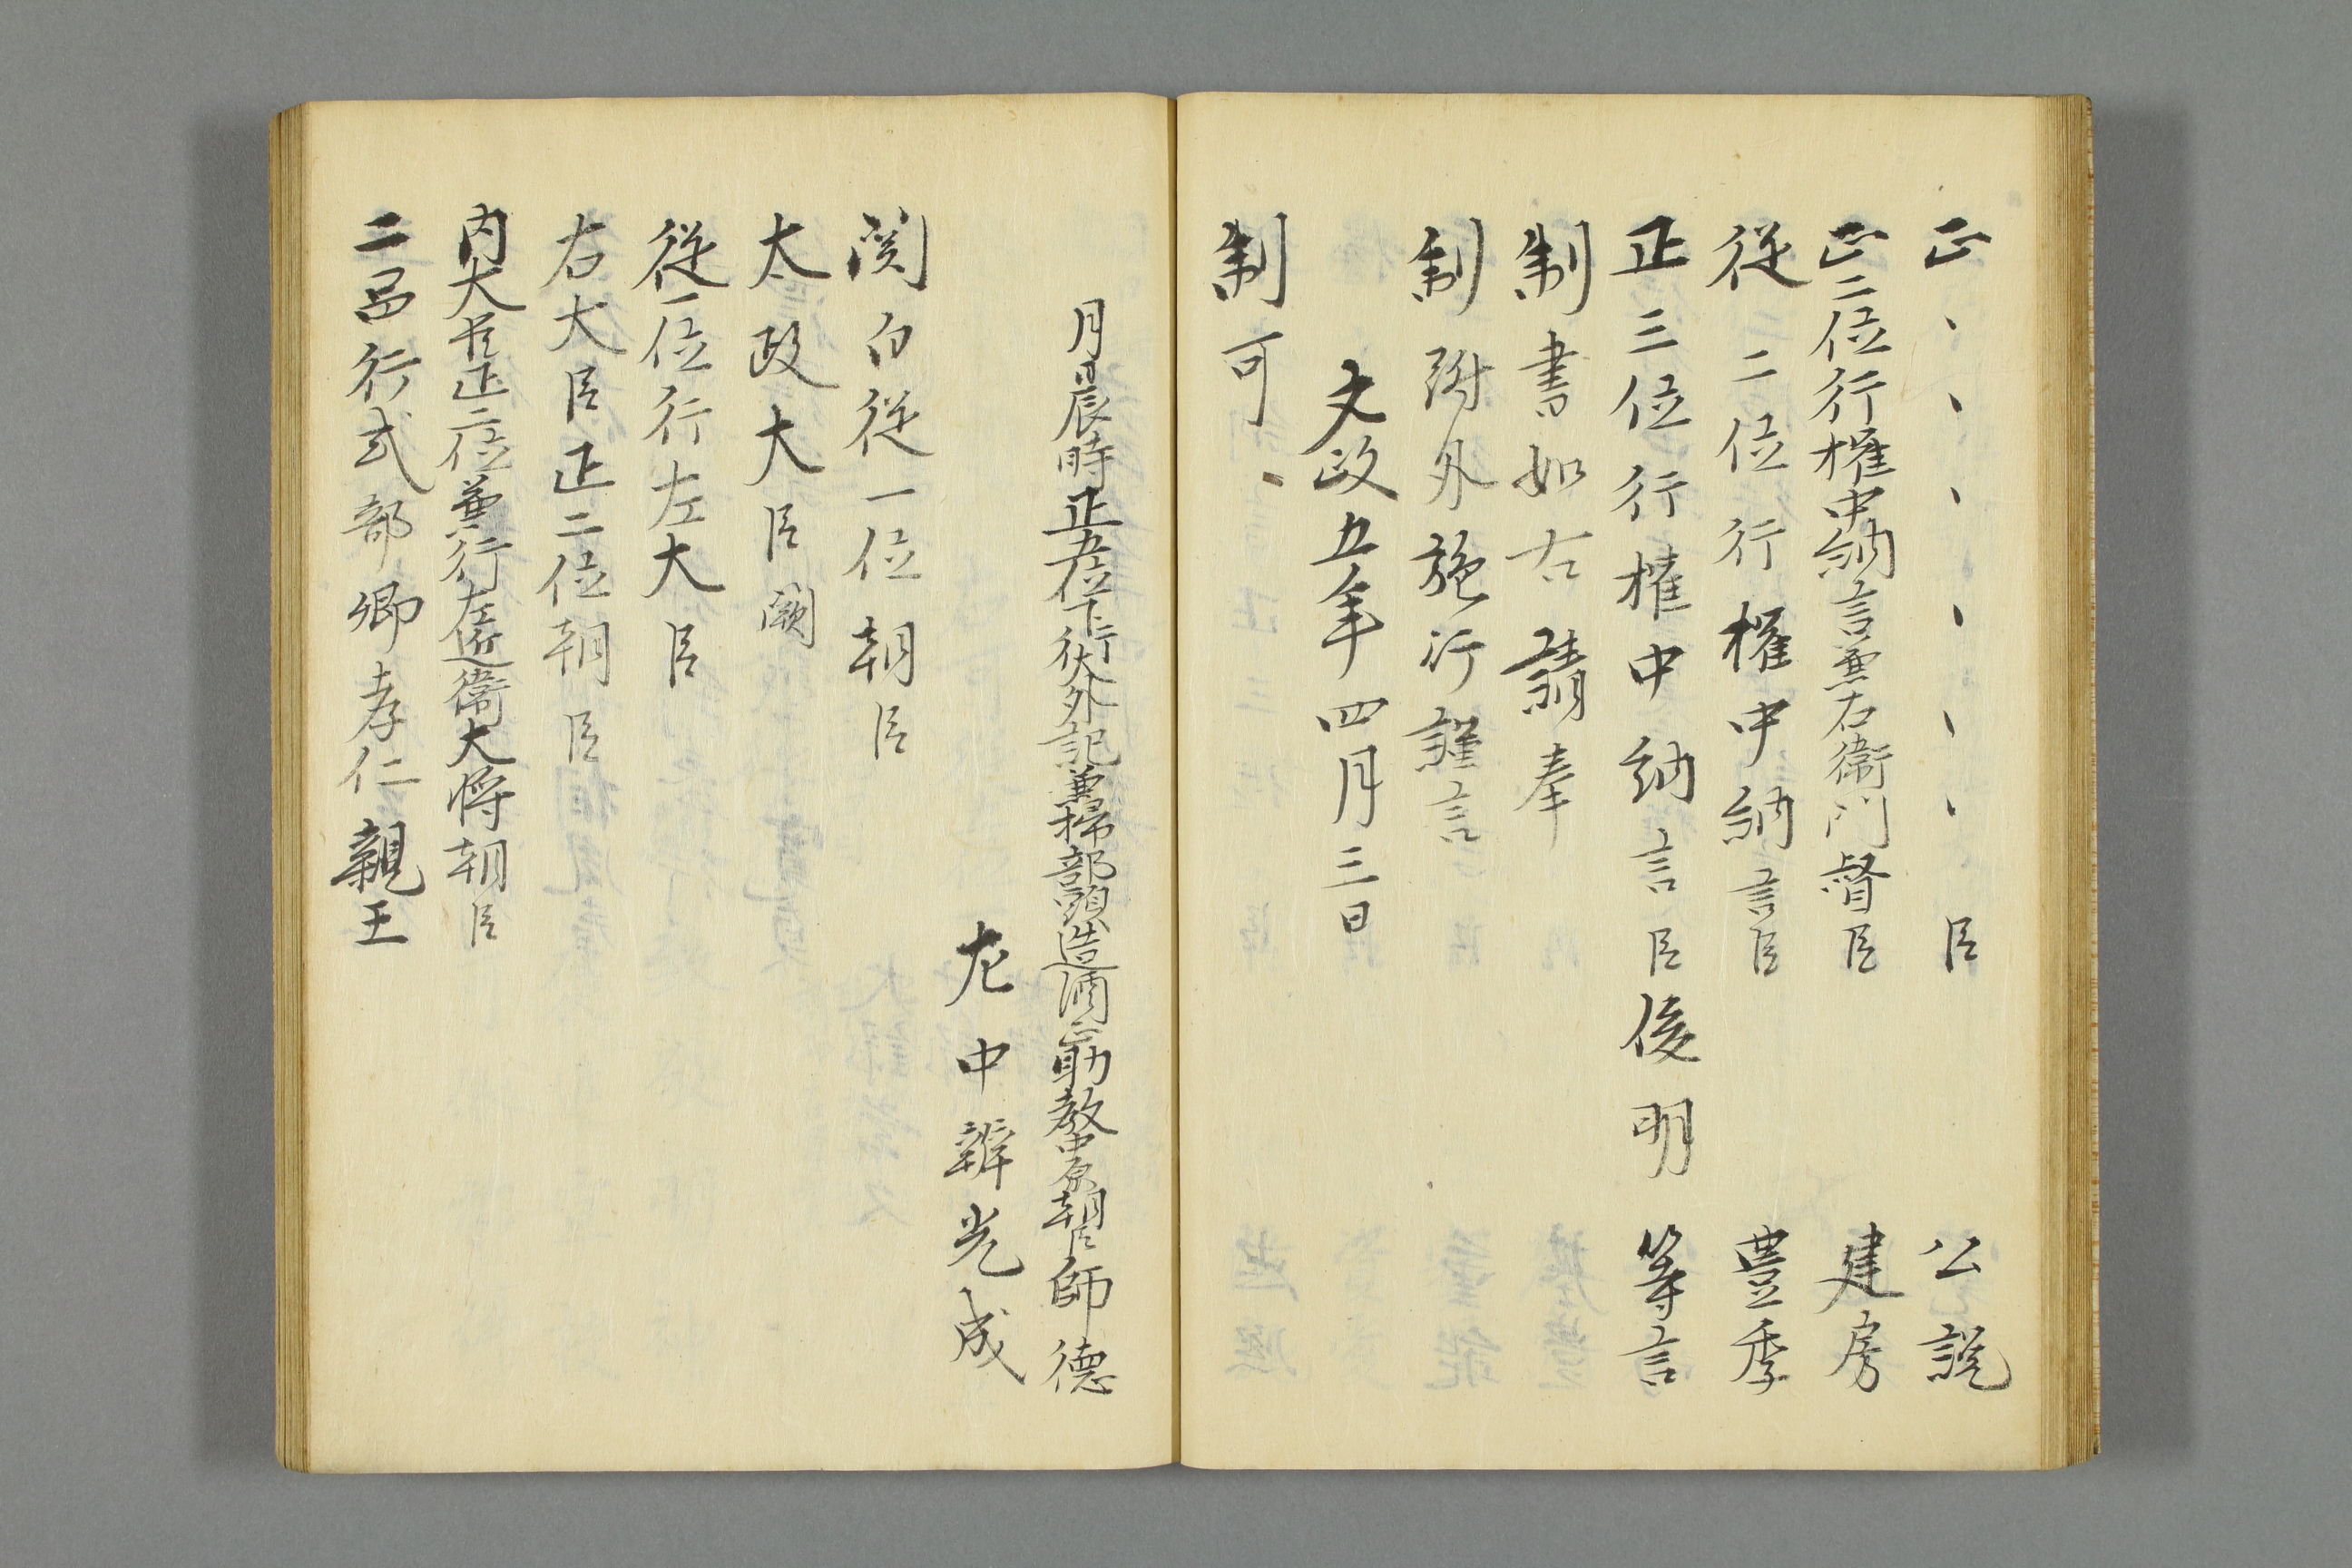 正、、、、、臣 公説
正二位行権中納言兼右衛門督臣 建房
従二位行権中納言臣 豊季
正三位行権中納言臣俊明 等言
制書如右請奉
制附外施行謹言
文政五年四月三日
制可、
月日辰時正五位下行大外記兼掃部頭造酒正助教中原朝臣師徳
左中辨光成
関白従一位朝臣
太政大臣闕
従一位行左大臣
右大臣正二位朝臣
内大臣正二位兼行左近衛大将朝臣
二品行式部卿孝仁親王